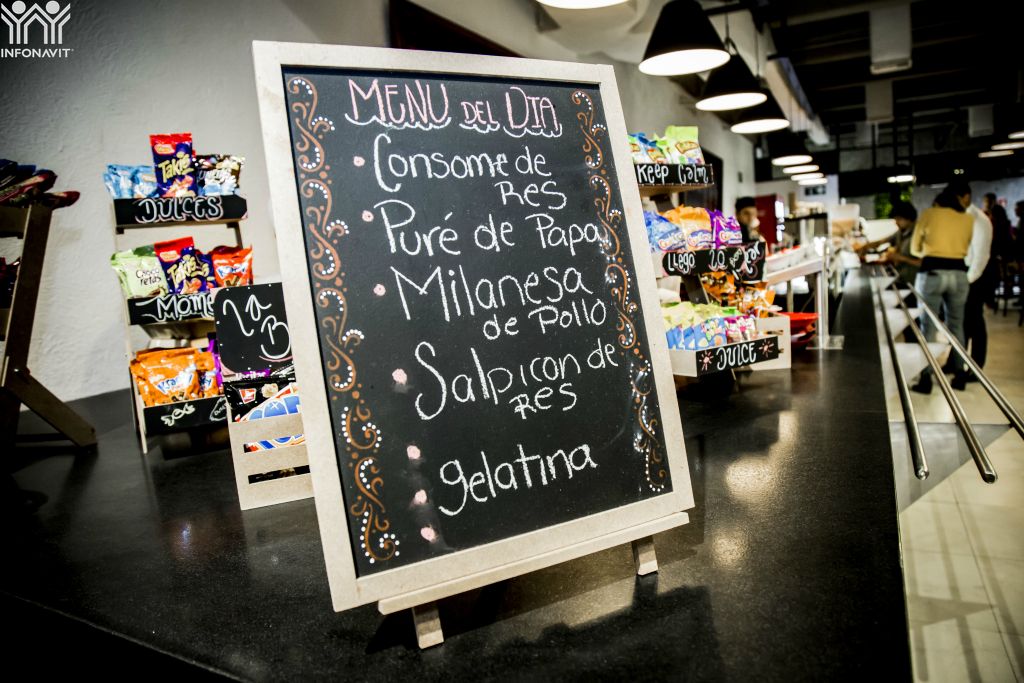 INFONAVIT
MENU DEL DIA
Consome de
RES
Puré de Papa
Milanesa
de Pollo
Salpicon de
RES
gelatina
DULCES
Takis
Takis
LA
B
KEEP CALM
LLEGO
DULCE